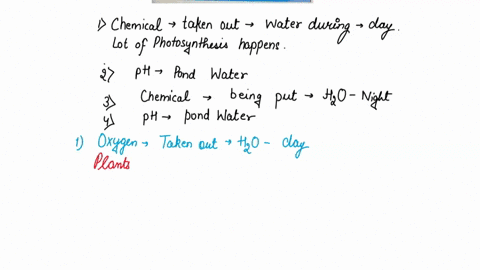 1) Chemical → taken out → Water during → day.
Lot of Photosynthesis happens.
2) pH → Pond Water
3) Chemical → being put → H₂O - Night
4) pH → pond Water
1) Oxygen → Taken out → H₂O - day
Plants